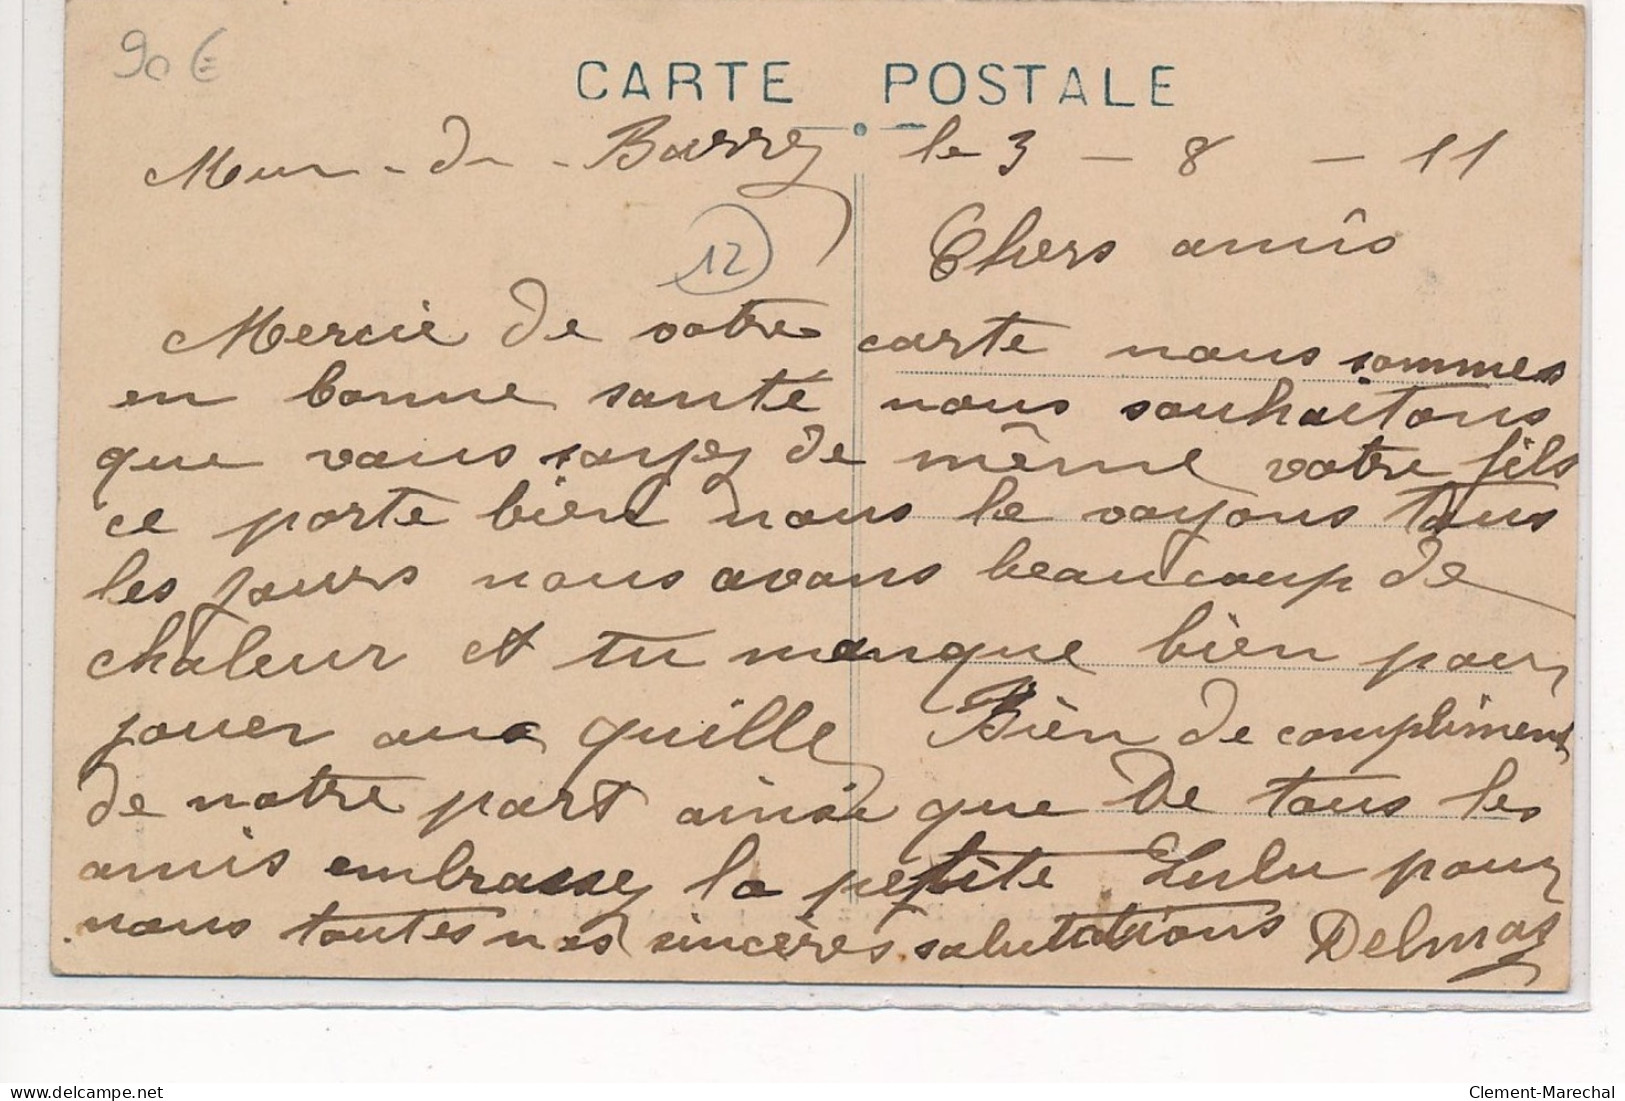 90€
CARTE POSTALE
Mur-de-Barrez le 3 - 8 - 11
12
Chers amis
Mercie de votre carte nous sommes
en bonne santé nous souhaitons
que vous soyez de même votre fils
ce porte bien nous le voyons tous
les jours nous avons beaucoup de
chaleur et tu manque bien pour
jouer aux quille Bien de compliment
de notre part ainsi que De tous les
amis embrassez la petite Lulu pour
nous toutes nos sincères salutations Delmas
delcampe.net
Clement-Marechal